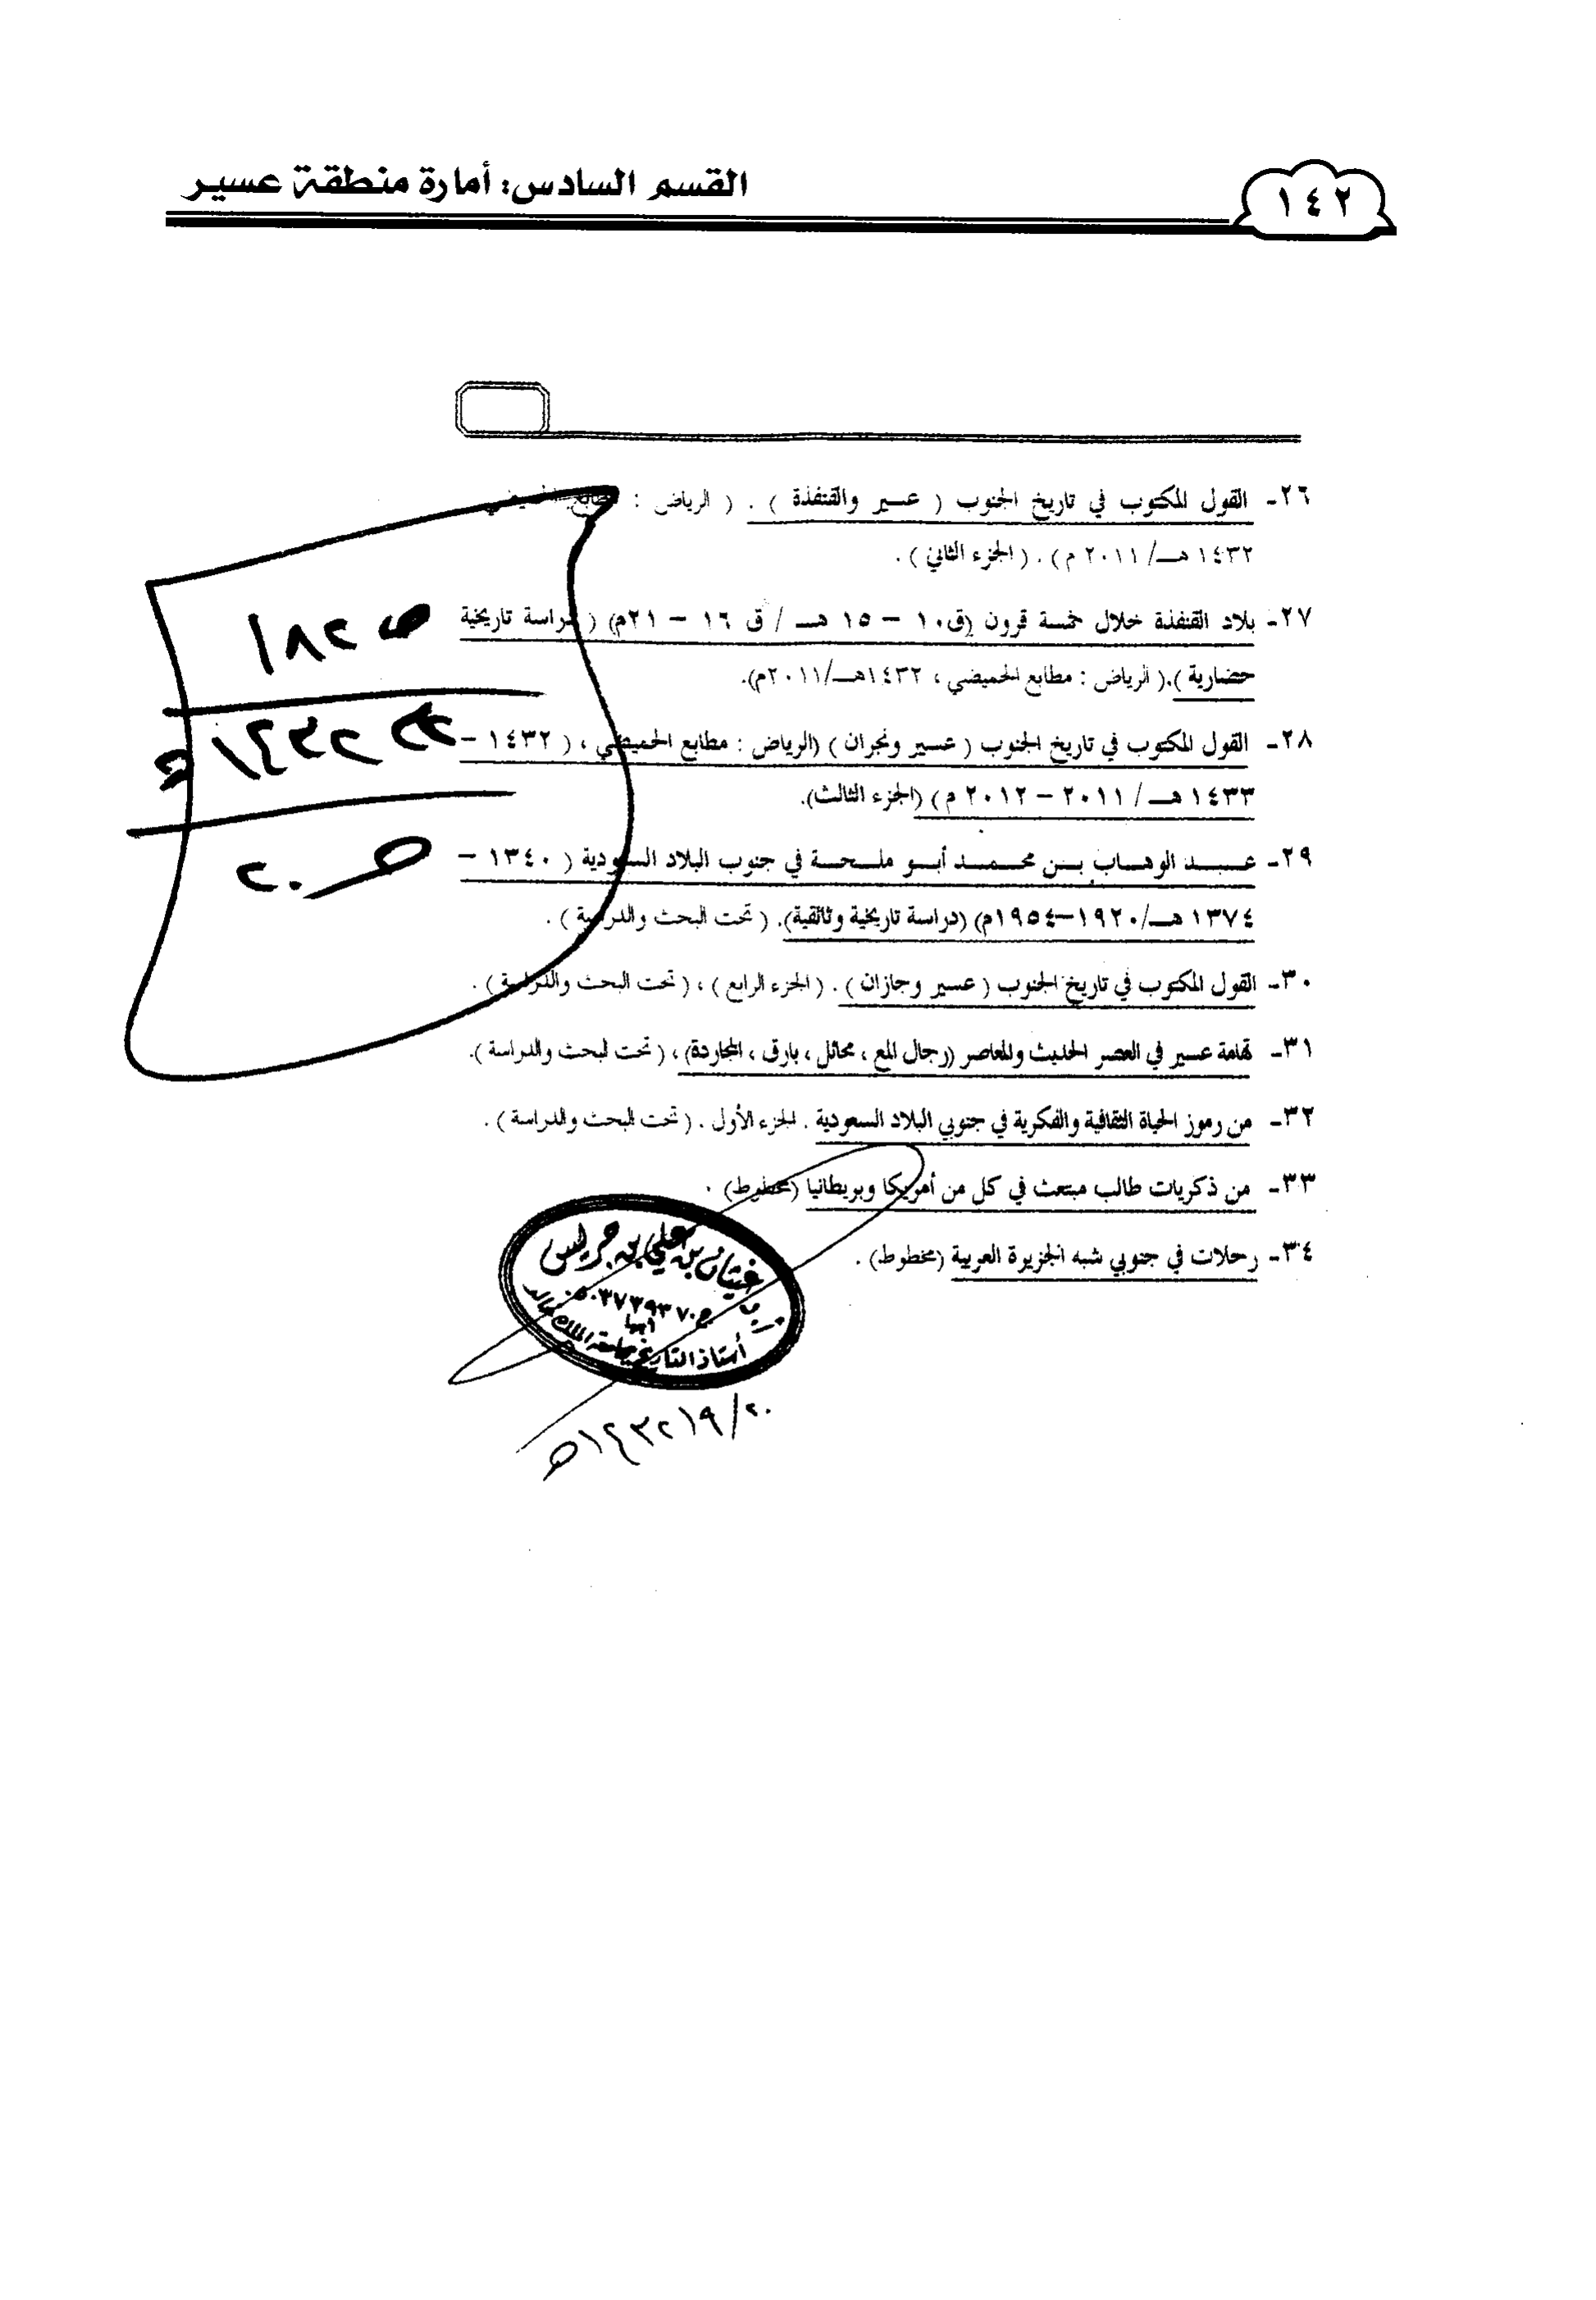 ١٤٢
القسم السادس: أمارة منطقة عسير
٢٦- القول المكتوب في تاريخ الجنوب ( عسير والقنفذة ) . ( الرياض : مطابع الحميضي
١٤٣٢ هـ/ ٢٠١١ م ) . ( الجزء الثاني ) .
٢٧- بلاد القنفذة خلال خمسة قرون (ق١٠ – ١٥ هـ / ق ١٦ – ٢١م) ( دراسة تاريخية
حضارية ).( الرياض : مطابع الحميضي ، ١٤٣٢هـ/٢٠١١م).
٢٨- القول المكتوب في تاريخ الجنوب ( عسير ونجران ) (الرياض : مطابع الحميضي ، ( ١٤٣٢ –
١٤٣٣ هـ/ ٢٠١١ – ٢٠١٢ م ) (الجزء الثالث).
٢٩- عبد الوهاب بن محمد أبو ملحة في جنوب البلاد السعودية ( ١٣٤٠ –
١٣٧٤ هـ/١٩٢٠–١٩٥٤م) (دراسة تاريخية وثائقية). ( تحت البحث والدراسة ) .
٣٠- القول المكتوب في تاريخ الجنوب ( عسير وجازان ) . ( الجزء الرابع ) ، ( تحت البحث والدراسة ) .
٣١- تهامة عسير في العصر الحديث والمعاصر (رجال المع ، محائل ، بارق ، المجاردة) ، ( تحت البحث والدراسة ).
٣٢- من رموز الحياة الثقافية والفكرية في جنوبي البلاد السعودية . الجزء الأول . ( تحت البحث والدراسة ) .
٣٣- من ذكريات طالب مبتعث في كل من أمريكا وبريطانيا (مخطوط) .
٣٤- رحلات في جنوبي شبه الجزيرة العربية (مخطوط) .
ص ١٨٢
ص ٢٠
غيثان بن علي بن جريس
ج ٠٥٠٣٧٣٩٣٧٠
أبها
أستاذ التاريخ بجامعة الملك خالد
٢٠/٩/١٤٣٢هـ